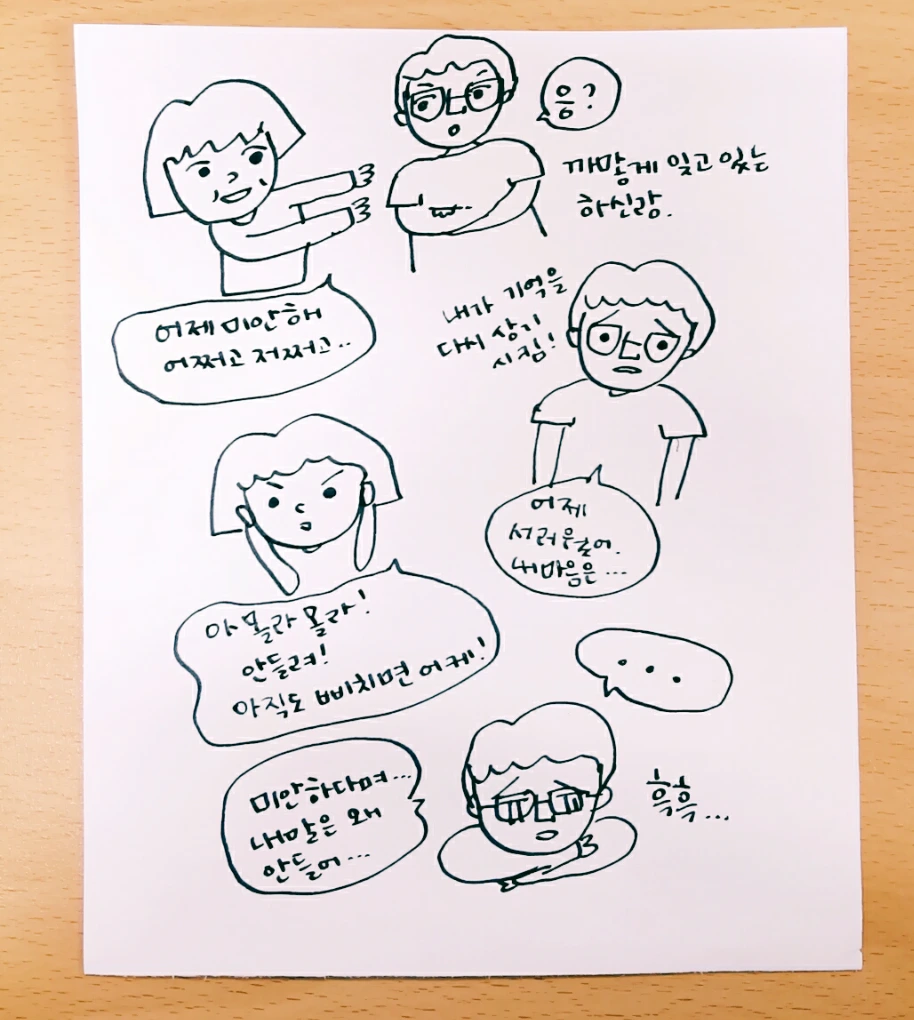 응?
까맣게 잊고 있는
하신랑.
어제 미안해
어쩌고 저쩌고..
내가 기억을
다시 상기
시킴!
어제
서러웠어.
내마음은...
아 몰라 몰라!
안들려!
아직도 삐치면 어케!
...
미안하다며...
내말은 왜
안들어...
흑흑...